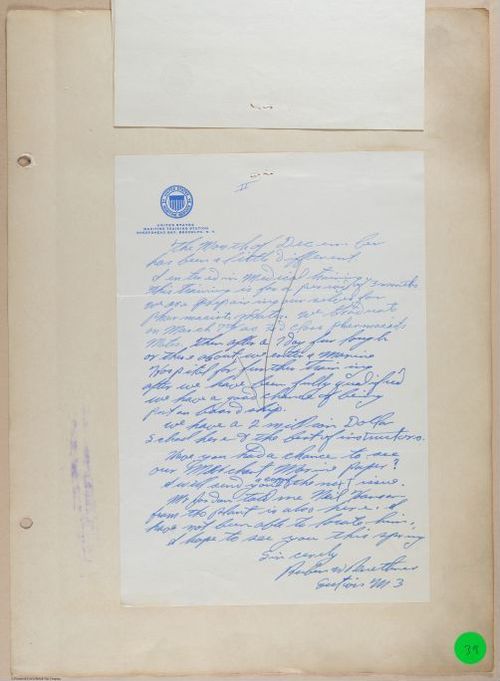 II
UNITED STATES
MARITIME TRAINING STATION
SHEEPSHEAD BAY, BROOKLYN, N. Y.
The Month of December
has been a little different
I entered in Medical training.
This training is for a period of 3 months
we are preparing ourselves for
pharmacist mates. We graduate
on March 7th as 2d class pharmacist
Mates, then after a day furlough
or there about we enter a Marine
Hospital for further training
after we have been fully qualified
we have a good chance of being
put on board ship.
We have a 2 million Dollar
School here & the best of instructors.
Have you had a chance to see
our Marine paper?
I will send you a copy of the next issue.
Mr Jordan told me Neil Hansen
from the plant is also here. I
have not been able to locate him.
I hope to see you this spring
Sincerely
Section M 3
39